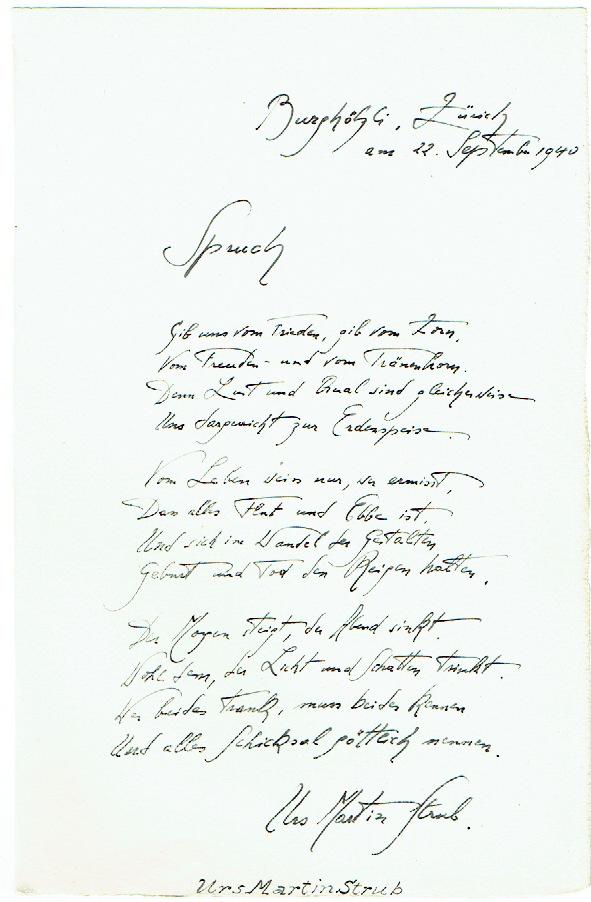 Burghölzli, Zürich
am 22. September 1940
Spruch
Gib uns vom Frieden, gib vom Zorn,
Vom Freuden- und vom Tränenhorn.
Denn Lust und Qual sind gleicherweise
Uns dargereicht zur Erdenspeise.
Vom Leben weiss nur, wer ermisst,
Dass alles Flut und Ebbe ist,
Und sich im Wandel der Gestalten
Geburt und Tod den Reigen halten.
Der Morgen steigt, der Abend sinkt.
Wohl dem, der Licht und Schatten trinkt.
Wer beides trank, muss beides kennen
Und alles Schicksal göttlich nennen.
Urs Martin Strub.
Urs Martin Strub